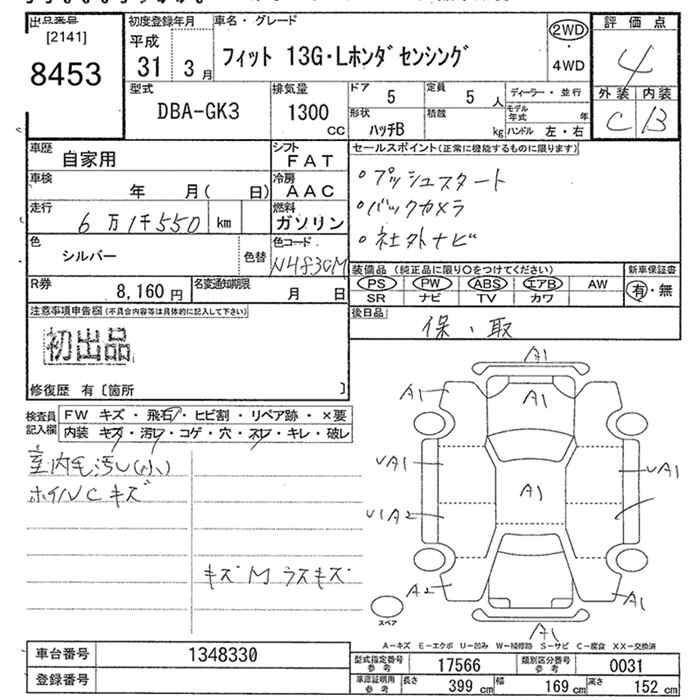 出品番号
[2141]
8453
初度登録年月
平成
31 3月
車名・グレード
フィット 13G・Lホンダセンシング
2WD
・
4WD
評価点
4
外装 内装
C B
型式
DBA-GK3
排気量
1300
CC
ドア
5
定員
5 人
形状
ハッチB
積載
kg
ディーラー・並行
モデル年式 年
ハンドル 左・右
車歴
自家用
シフト
FAT
車検
年 月( 日)
冷房
AAC
走行
6万1千550 km
燃料
ガソリン
色
シルバー
色替
色コード
NH830M
R券
8,160円
名変通知期限
月 日
セールスポイント(正常に機能するものに限ります)
○プッシュスタート
○バックカメラ
○社外ナビ
装備品(純正品に限り○をつけてください)
PS PW ABS エアB AW
SR ナビ TV カワ
新車保証書
有・無
後日品
保、取
注意事項申告欄(不具合内容等は具体的に記入して下さい)
初出品
修復歴 有〔箇所 〕
検査員記入欄
FW キズ・飛石・ヒビ割・リペア跡・×要
内装 キズ・汚レ・コゲ・穴・スレ・キレ・破レ
室内毛汚レ(小)
ホイルCキズ
キズM ラスキズ
A1
A1
A1
A1
UA1
UA1
A1
U1A2
A2
A1
A1
スペア
A−キズ E−エクボ U−凹み W−補修跡 S−サビ C−腐食 XX−交換済
車台番号
1348330
登録番号
型式指定番号
参考
17566
類別区分番号
参考
0031
車庫証明用
参考
長さ
399 cm
幅
169 cm
高さ
152 cm